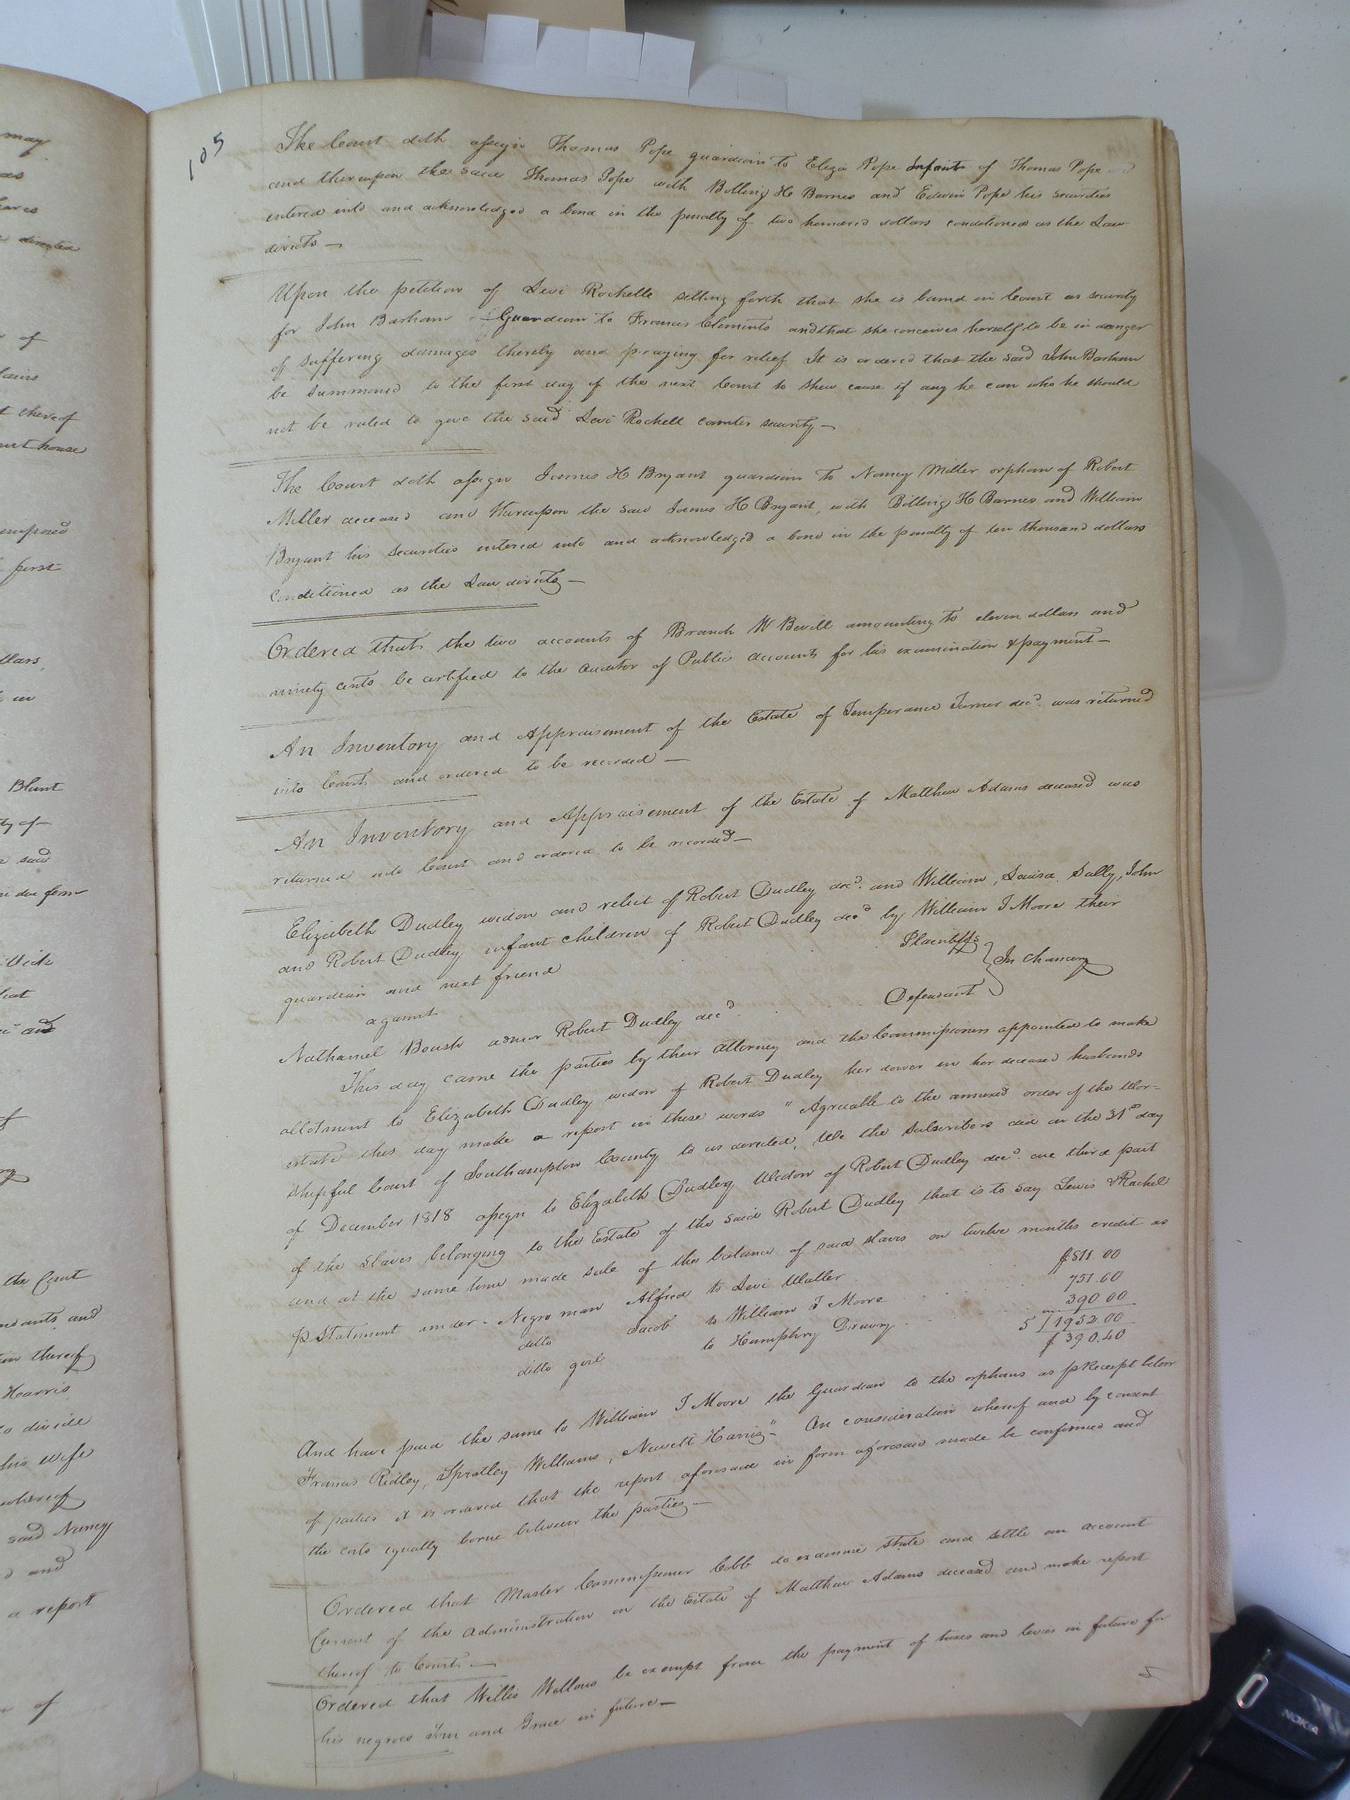 105
The Court doth assign Thomas Pope guardian to Eliza Pope Infant of Thomas Pope
and thereupon the said Thomas Pope with Bolling H Barnes and Edwin Pope his securities
entered into and acknowledged a bond in the penalty of two hundred dollars conditioned as the Law
directs —
Upon the petition of Levi Rochelle setting forth that she is bound in Court as security
for John Barham Guardian to Frances Clements and that she conceives herself to be in danger
of suffering damages thereby and praying for relief It is ordered that the said John Barham
be Summoned to the first day of the next Court to shew cause if any he can who he should
not be ruled to give the said Levi Rochell counter security —
The Court doth assign James H Bryant guardian to Nancy Miller orphan of Robert
Miller deceased and thereupon the said James H Bryant, with Bolling H Barnes and William
Bryant his securities entered into and acknowledged a bond in the penalty of ten thousand dollars
conditioned as the Law directs —
Ordered that the two accounts of Branch W Bevill amounting to eleven dollars and
ninety cents be certified to the Auditor of Public accounts for his examination & payment —
An Inventory and Appraisement of the Estate of Temperance Turner decd. was returned
into Court and ordered to be recorded —
An Inventory and Appraisement of the Estate of Matthew Adams deceased was
returned into Court and ordered to be recorded —
Elizabeth Dudley widow and relict of Robert Dudley decd. and William, Louisa, Sally, John
and Robert Dudley infant children of Robert Dudley decd by William T Moore their
guardian and next friend Plaintiffs
against In Chancery
Nathaniel Boush admor Robert Dudley decd. Defendant
This day came the parties by their Attorney and the Commissioners appointed to make
allotment to Elizabeth Dudley widow of Robert Dudley her dower in her deceased husbands
estate this day make a report in these words " Agreeable to the annexed order of the Wor-
shipful Court of Southampton County to us directed, We the Subscribers did on the 31st day
of December 1818 assign to Elizabeth Dudley Widow of Robert Dudley decd. one third part
of the Slaves belonging to the Estate of the said Robert Dudley that is to say Lewis & Rachel
and at the same time made sale of the balance of said slaves on twelve months credit as
p Statement under - Negro man Alfred to Levi Waller $811.00
ditto Jacob to William T Moore 751.00
ditto girl to Humphry Drewry 390.00
5 | 1952.00
$ 390.40
And have paid the same to William T Moore the Guardian to the orphans as p Receipt below
Francis Ridley, Spratley Williams, Newett Harris" - On consideration whereof and by consent
of parties it is ordered that the report aforesaid in form aforesaid made be confirmed and
the costs equally borne between the parties —
Ordered that Master Commissioner Cobb do examine state and settle an account
Current of the Administration on the Estate of Matthew Adams deceased and make report
thereof to Court —
Ordered that Willis Wellons be exempt from the payment of taxes and levies in future for
his negroes Tom and Grace in future —
may
of
thereof
first
Blunt
of
the Court
and
thereof
Harris
to divide
his wife
whereof
said Nancy
and
a report
of
NOKIA